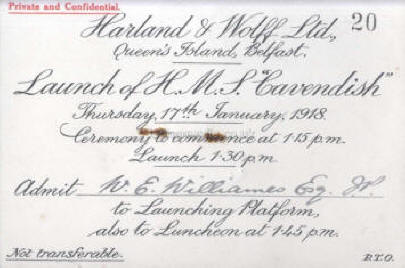 Private and Confidential.
20
Harland & Wolff Ltd.,
Queen's Island, Belfast.
Launch of H.M.S. "Cavendish"
Thursday, 17th January, 1918.
Ceremony to commence at 1·15 p.m.
Launch 1·30 p.m.
Admit W. E. Williames Esq. JP.
to Launching Platform,
also to Luncheon at 1·45 p.m.
Not transferable.
P.T.O.